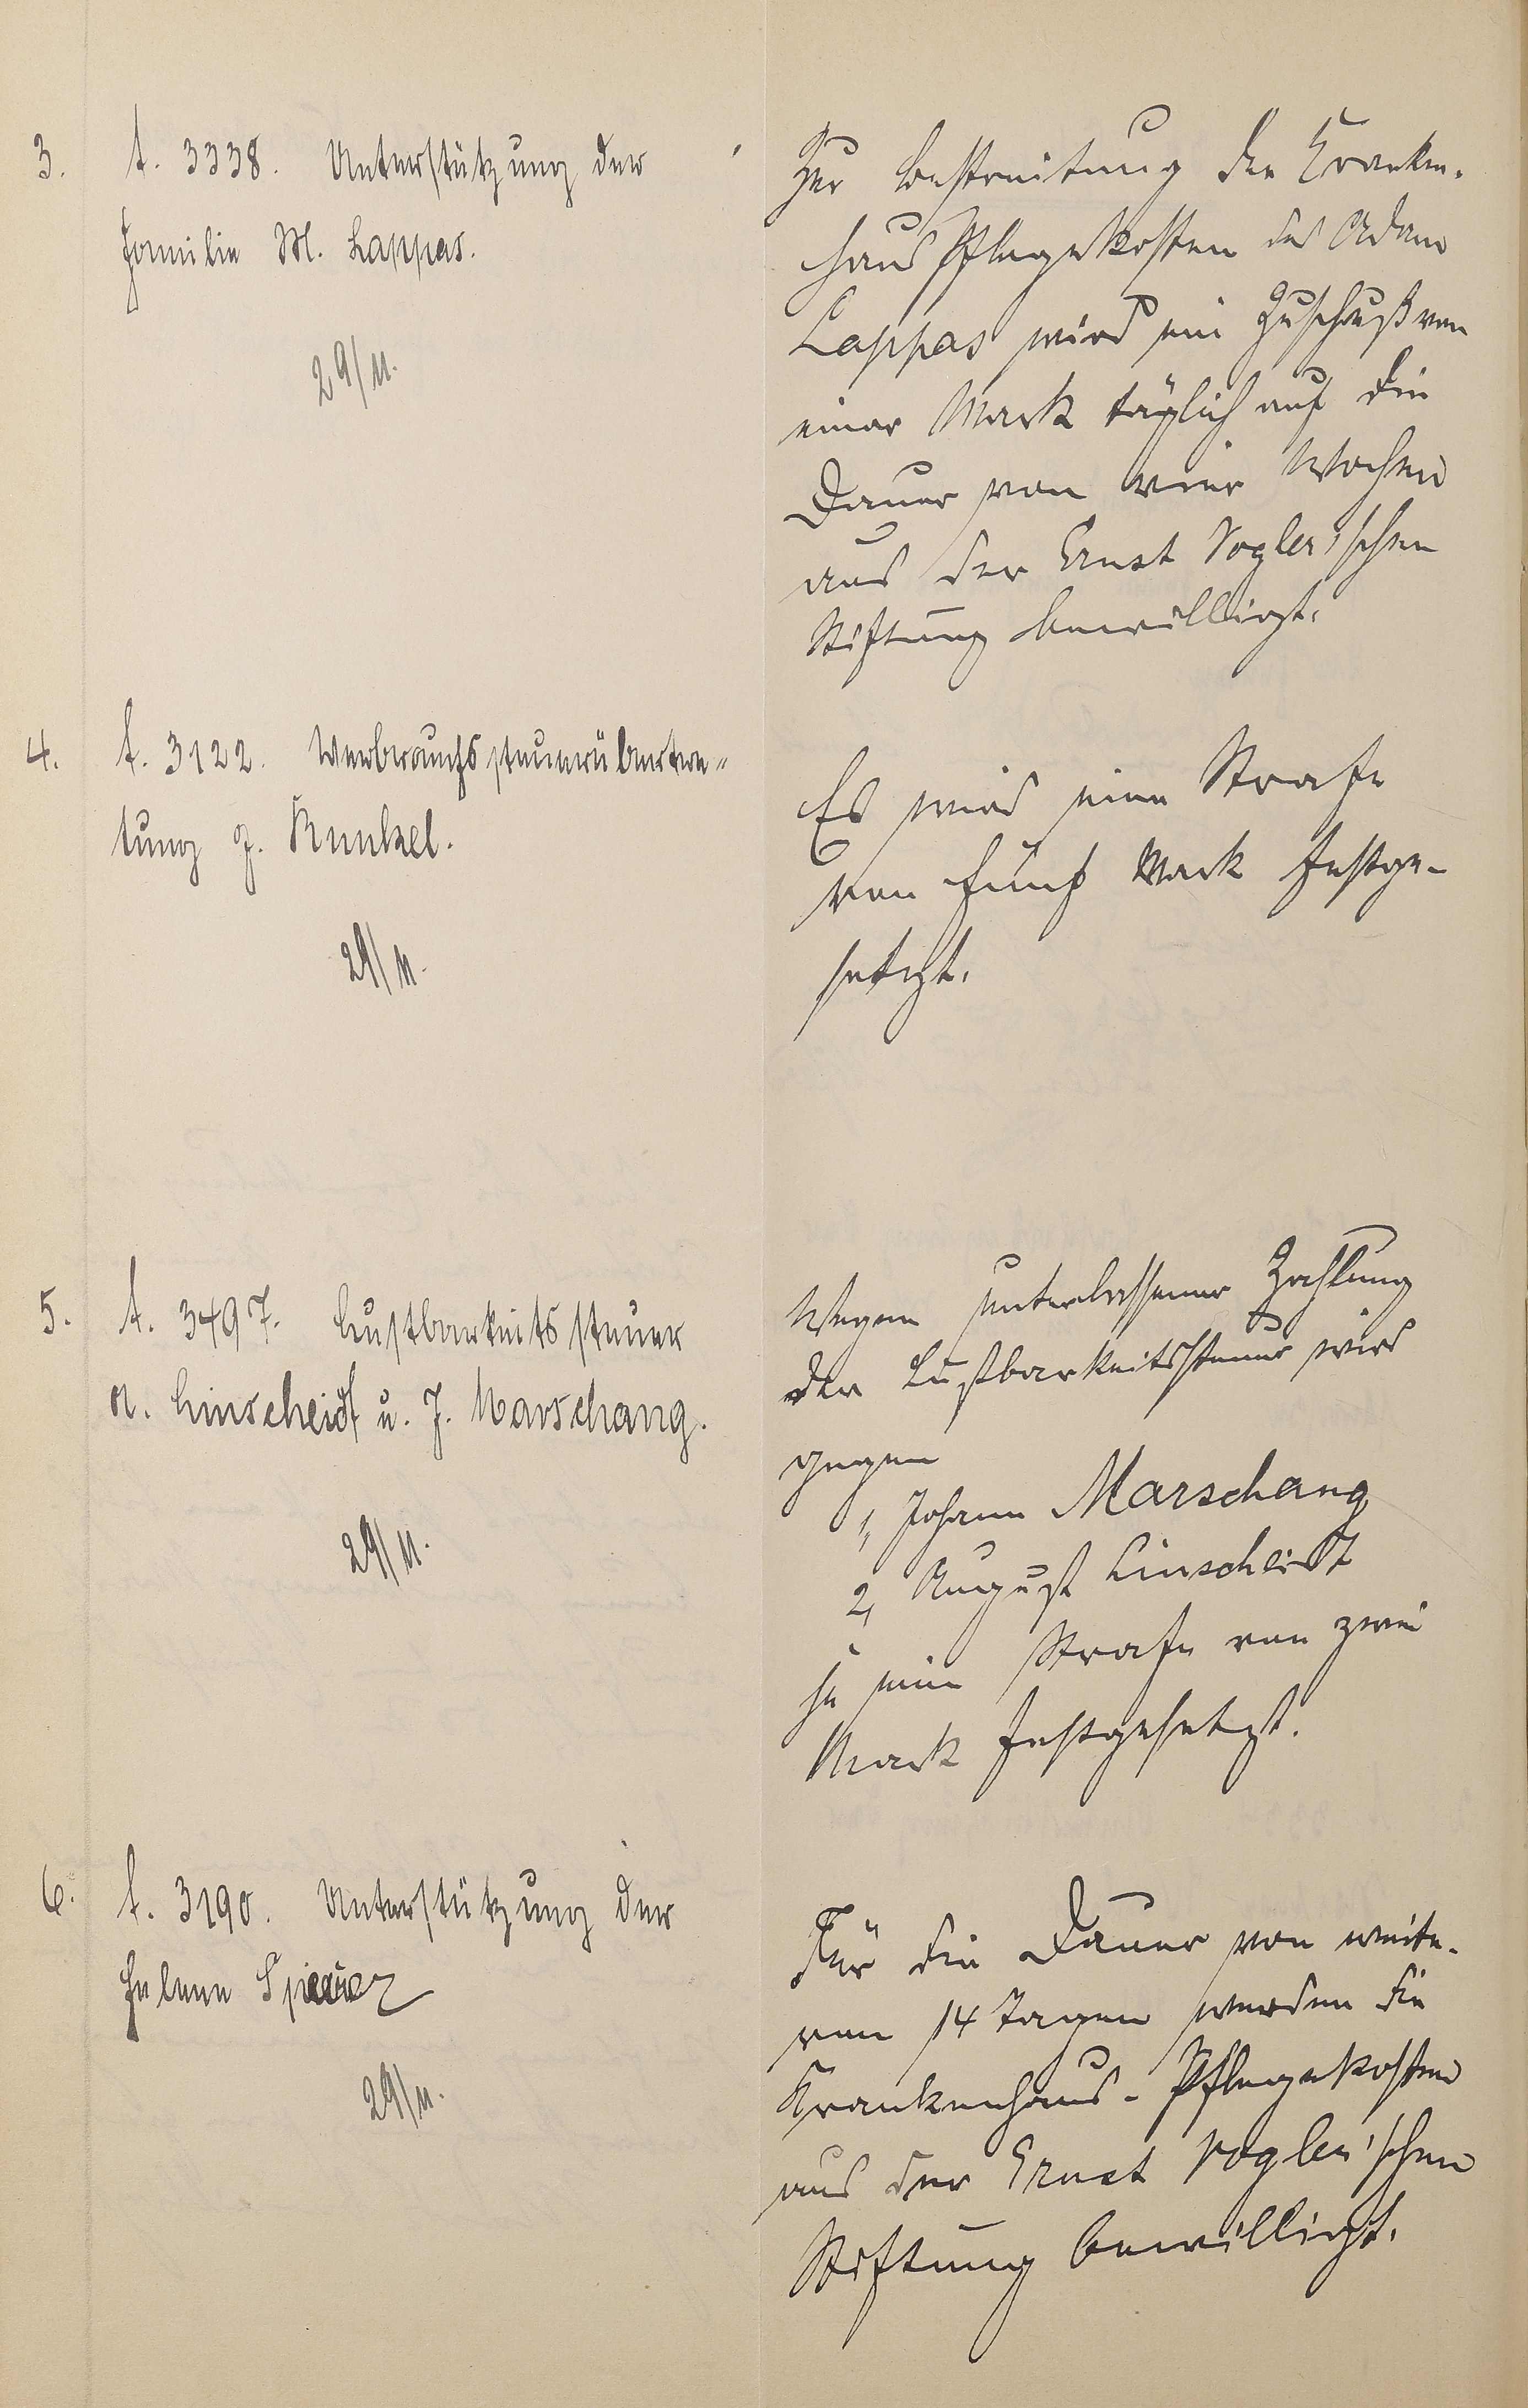 3. t. 3338. Unterstützung der
Familie M. Lappas.
29/11.
Zur Bestreitung der Kranken-
haus Pflegekosten des Adam
Lappas wird ein Zuschuß von
einer Mark täglich auf die
Dauer von vier Wochen
aus der Ernst Vogler'schen
Stiftung bewilligt.
4. t. 3122. Verbrauchssteuerübertre-
tung J. Runkel.
29/11.
Es wird eine Strafe
von fünf Mark festge-
setzt.
5. t. 3497. Lustbarkeitssteuer
A. Linscheidt u. J. Marschang.
29/11.
Wegen unterlassener Zahlung
der Lustbarkeitssteuer wird
gegen
1, Johann Marschang
2, August Linscheidt
je eine Strafe von zwei
Mark festgesetzt.
6. t. 3190. Unterstützung der
Helene
29/11.
Für die Dauer von weite-
ren 14 Tagen werden die
Krankenhaus-Pflegekosten
aus der Ernst Vogler'schen
Stiftung bewilligt.